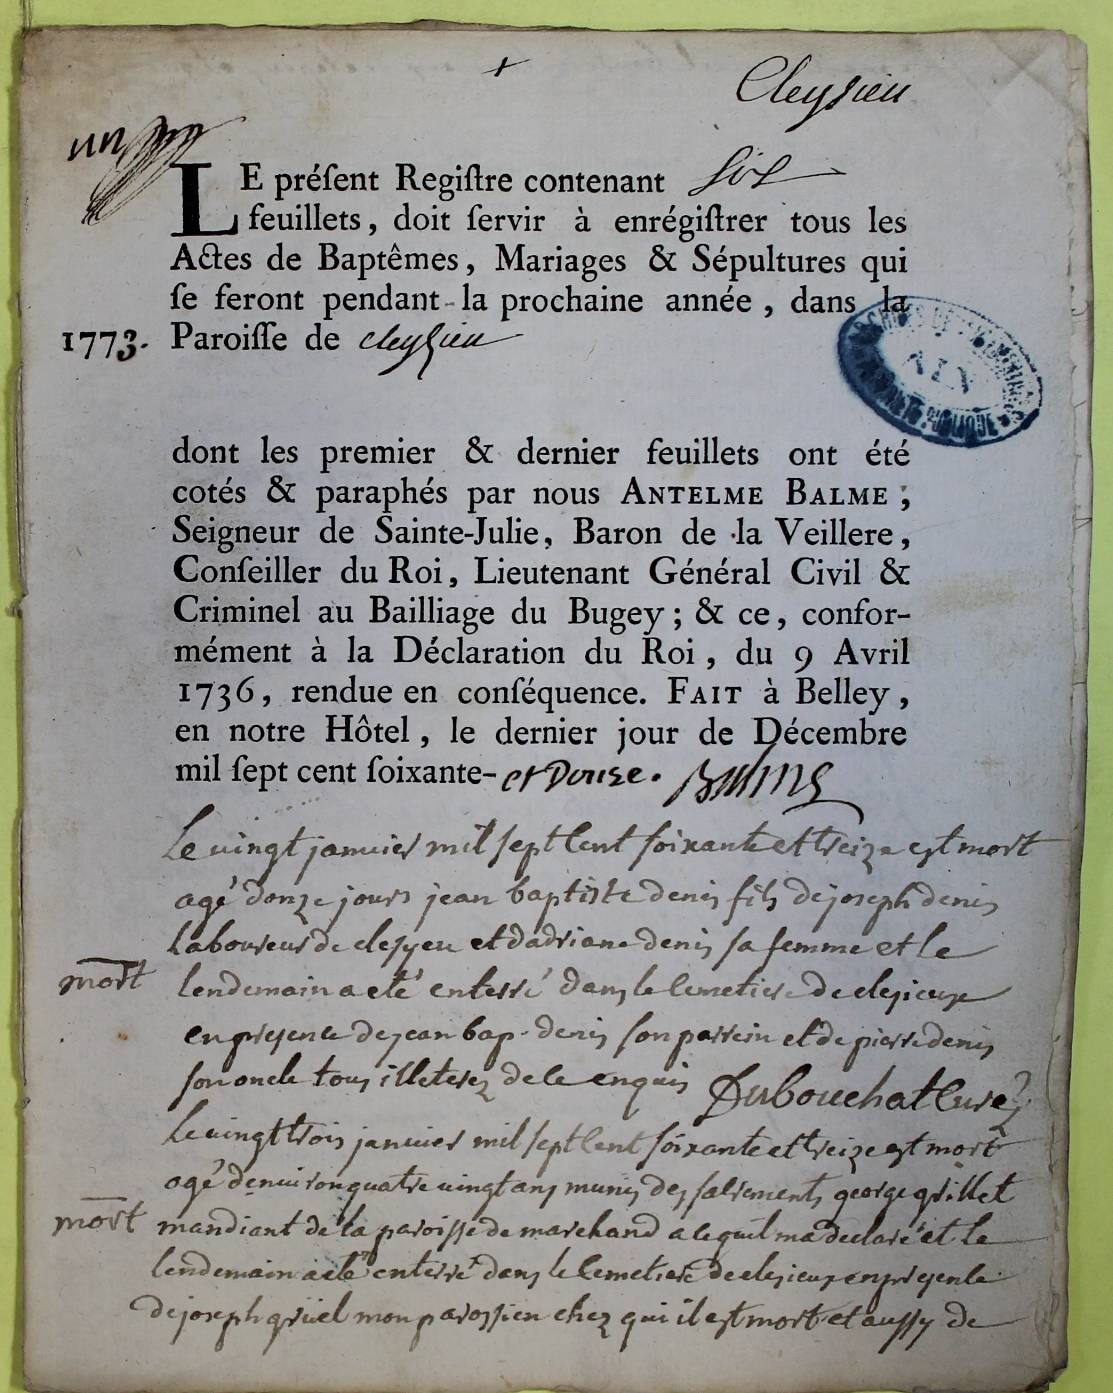 Cleyzieu
un
LE préſent Regiſtre contenant six
feuillets, doit ſervir à enrégiſtrer tous les
Actes de Baptêmes, Mariages & Sépultures qui
ſe feront pendant la prochaine année, dans la
1773. Paroiſſe de cleyzieu
dont les premier & dernier feuillets ont été
cotés & paraphés par nous ANTELME BALME,
Seigneur de Sainte-Julie, Baron de la Veillere,
Conſeiller du Roi, Lieutenant Général Civil &
Criminel au Bailliage du Bugey; & ce, confor-
mément à la Déclaration du Roi, du 9 Avril
1736, rendue en conſéquence. FAIT à Belley,
en notre Hôtel, le dernier jour de Décembre
mil ſept cent ſoixante- et Douze. Balme
Le vingt janvier mil sept Cent soixante et treize est mort
agé donze jours jean baptiste denis fils de joseph denis
Laboureur de clesyeu et dadriane denis sa femme et le
mort lendemain a eté enterré dans le Cemetiere de clesieux
en presence de jean bap. denis son parrein et de pierre denis
son oncle tous illeterez de ce enquis Dubouchat Curé
Le vingt trois janvier mil sept Cent soixante et treize est mort
agé denviron quatre vingt ans munis des sacrements george grillet
mort mandiant de la paroisse de marchand a ce quil ma declaré et le
lendemain a eté enterré dans le Cemetiere de clesieux en presence
de joseph grüel mon parossien chez qui il est mort et aussy de